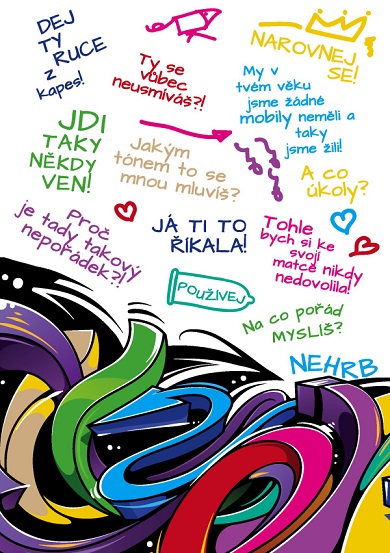 DEJ
TY
RUCE
z
kapes!
Ty se
vůbec
neusmíváš?!
NAROVNEJ
SE!
My v
tvém věku
jsme žádné
mobily neměli a
taky
jsme žili!
JDI
TAKY
NĚKDY
VEN!
Jakým
tónem to se
mnou mluvíš?
A co
úkoly?
Proč
je tady takový
nepořádek?!
JÁ TI TO
ŘÍKALA!
Tohle
bych si ke
svojí
matce nikdy
nedovolila!
POUŽÍVEJ
Na co pořád
MYSLÍŠ?
NEHRB